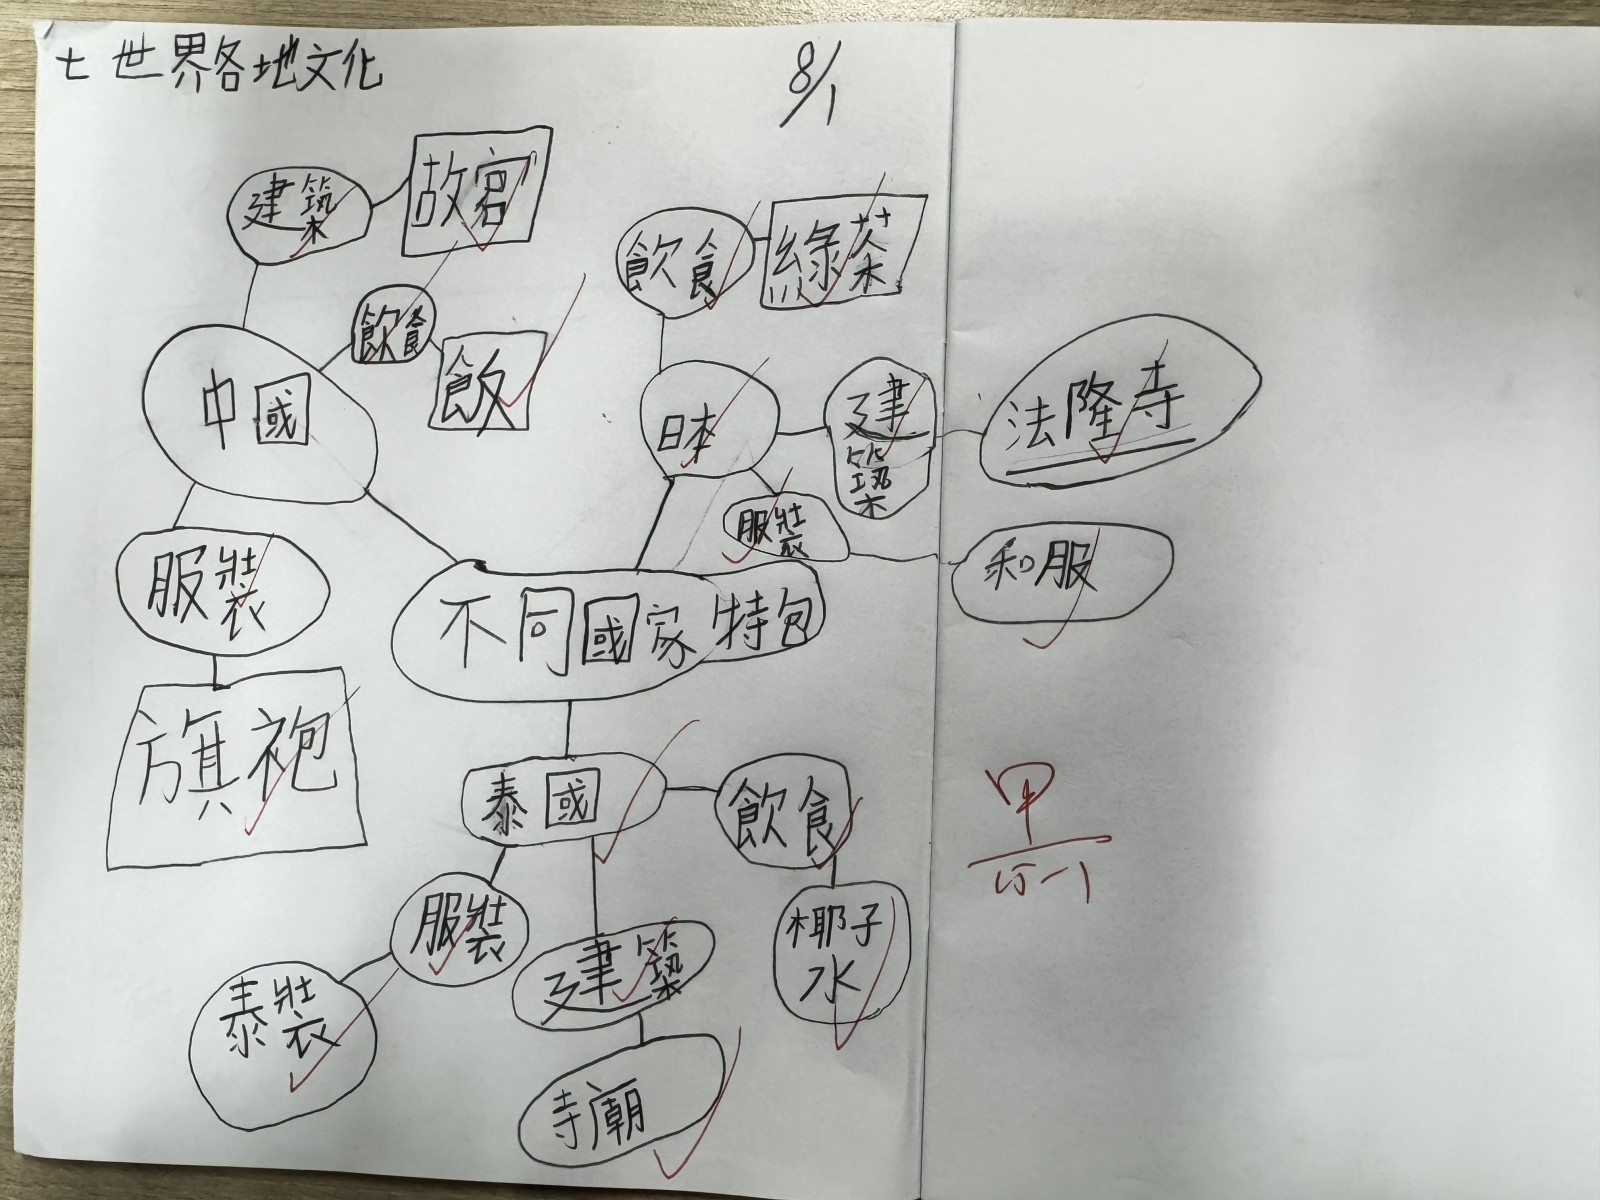 七 世界各地文化
8/1
建築
故宮
飲食
飯
中國
服裝
旗袍
飲食
綠茶
日本
建築
法隆寺
服裝
和服
不同國家特包
泰國
飲食
椰子
水
服裝
泰裝
建築
寺廟
甲